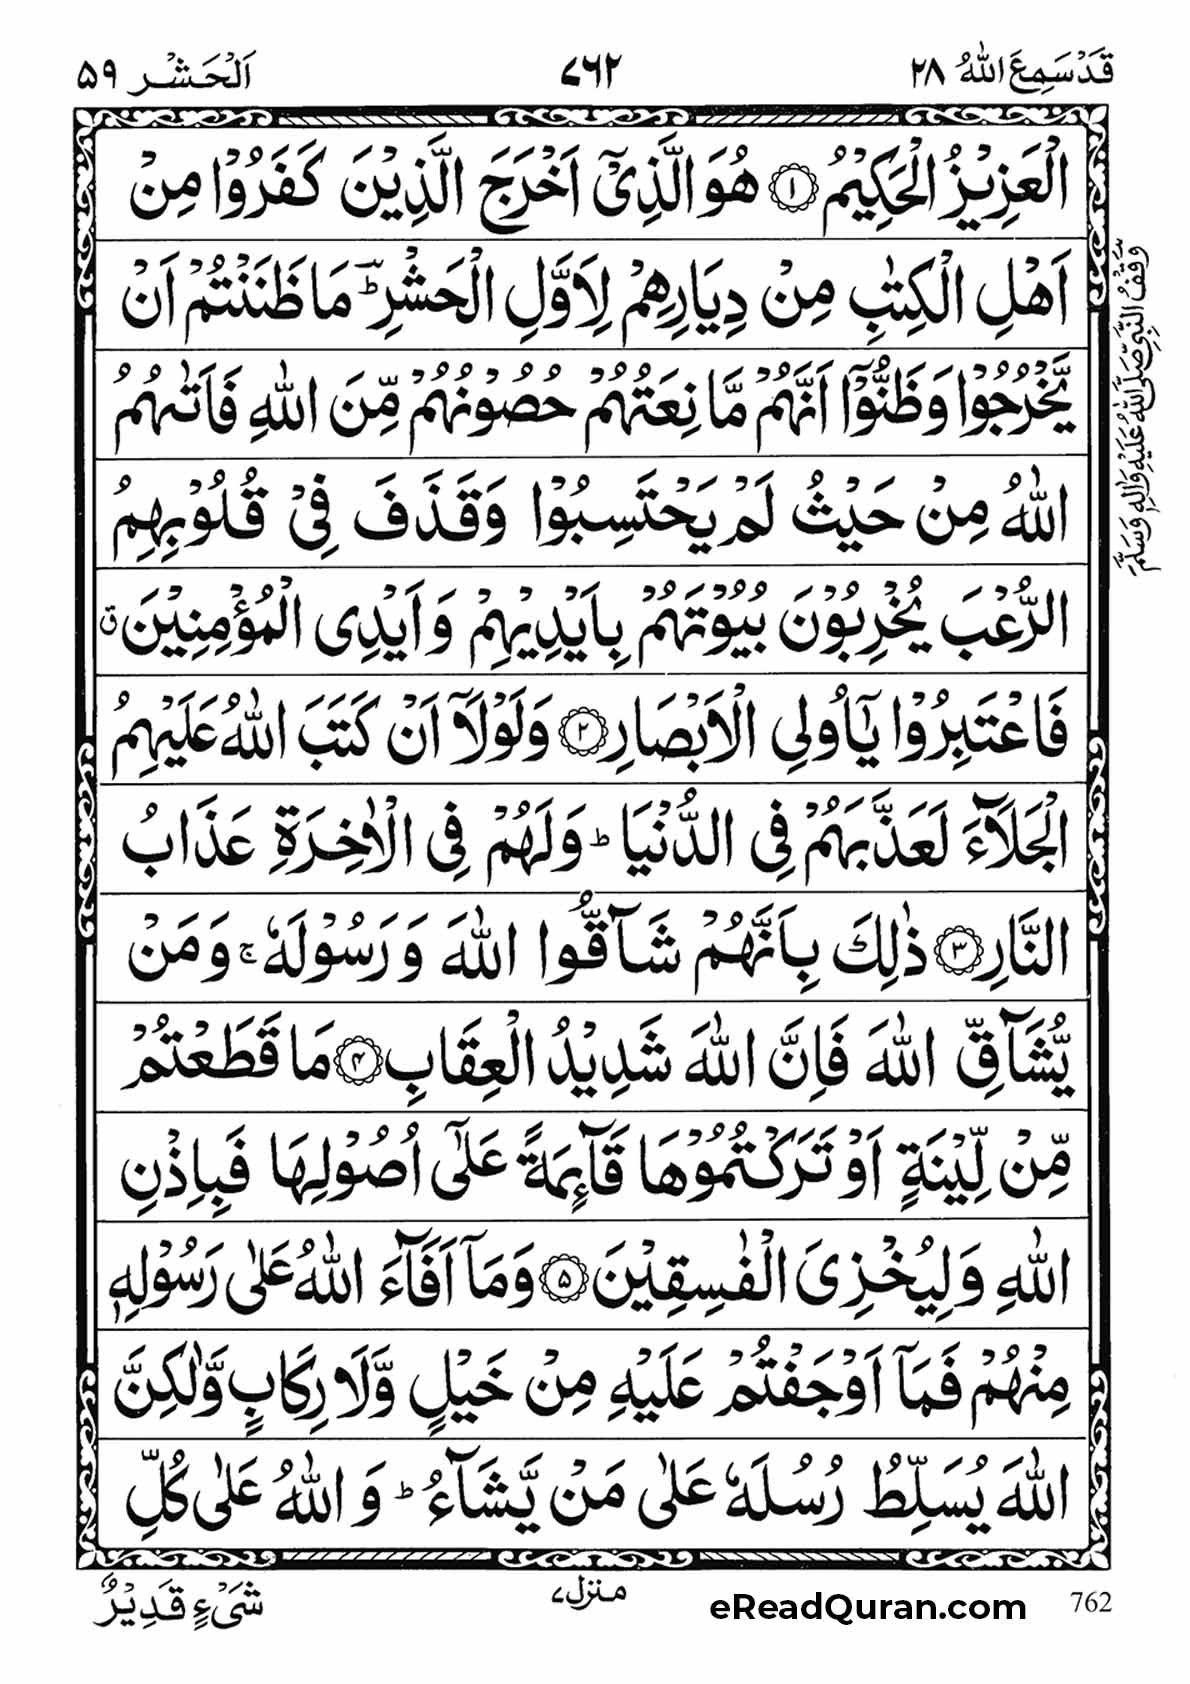 قَدْ سَمِعَ اللّٰهُ ۲۸
۷۶۲
اَلْحَشْر ۵۹
الْعَزِیْزُ الْحَكِیْمُ ۝۱ هُوَ الَّذِیْۤ اَخْرَجَ الَّذِیْنَ كَفَرُوْا مِنْ
اَهْلِ الْكِتٰبِ مِنْ دِیَارِهِمْ لِاَوَّلِ الْحَشْرِ ؕؔ مَا ظَنَنْتُمْ اَنْ
یَّخْرُجُوْا وَ ظَنُّوْۤا اَنَّهُمْ مَّانِعَتُهُمْ حُصُوْنُهُمْ مِّنَ اللّٰهِ فَاَتٰىهُمُ
اللّٰهُ مِنْ حَیْثُ لَمْ یَحْتَسِبُوْا وَ قَذَفَ فِیْ قُلُوْبِهِمُ
الرُّعْبَ یُخْرِبُوْنَ بُیُوْتَهُمْ بِاَیْدِیْهِمْ وَ اَیْدِی الْمُؤْمِنِیْنَ ۗ
فَاعْتَبِرُوْا یٰۤاُولِی الْاَبْصَارِ ۝۲ وَ لَوْ لَاۤ اَنْ كَتَبَ اللّٰهُ عَلَیْهِمُ
الْجَلَآءَ لَعَذَّبَهُمْ فِی الدُّنْیَا ؕ وَ لَهُمْ فِی الْاٰخِرَةِ عَذَابُ
النَّارِ ۝۳ ذٰلِكَ بِاَنَّهُمْ شَآقُّوا اللّٰهَ وَ رَسُوْلَهٗ ۚ وَ مَنْ
یُّشَآقِّ اللّٰهَ فَاِنَّ اللّٰهَ شَدِیْدُ الْعِقَابِ ۝۴ مَا قَطَعْتُمْ
مِّنْ لِّیْنَةٍ اَوْ تَرَكْتُمُوْهَا قَآىِٕمَةً عَلٰۤی اُصُوْلِهَا فَبِاِذْنِ
اللّٰهِ وَ لِیُخْزِیَ الْفٰسِقِیْنَ ۝۵ وَ مَاۤ اَفَآءَ اللّٰهُ عَلٰی رَسُوْلِهٖ
مِنْهُمْ فَمَاۤ اَوْجَفْتُمْ عَلَیْهِ مِنْ خَیْلٍ وَّ لَا رِكَابٍ وَّ لٰكِنَّ
اللّٰهَ یُسَلِّطُ رُسُلَهٗ عَلٰی مَنْ یَّشَآءُ ؕ وَ اللّٰهُ عَلٰی كُلِّ
وَقْفُ النَّبِیِّ صَلَّی اللّٰهُ عَلَیْهِ وَاٰلِهٖ وَسَلَّمَ
شَیْءٍ قَدِیْرٌ
منزل ۷
eReadQuran.com
762